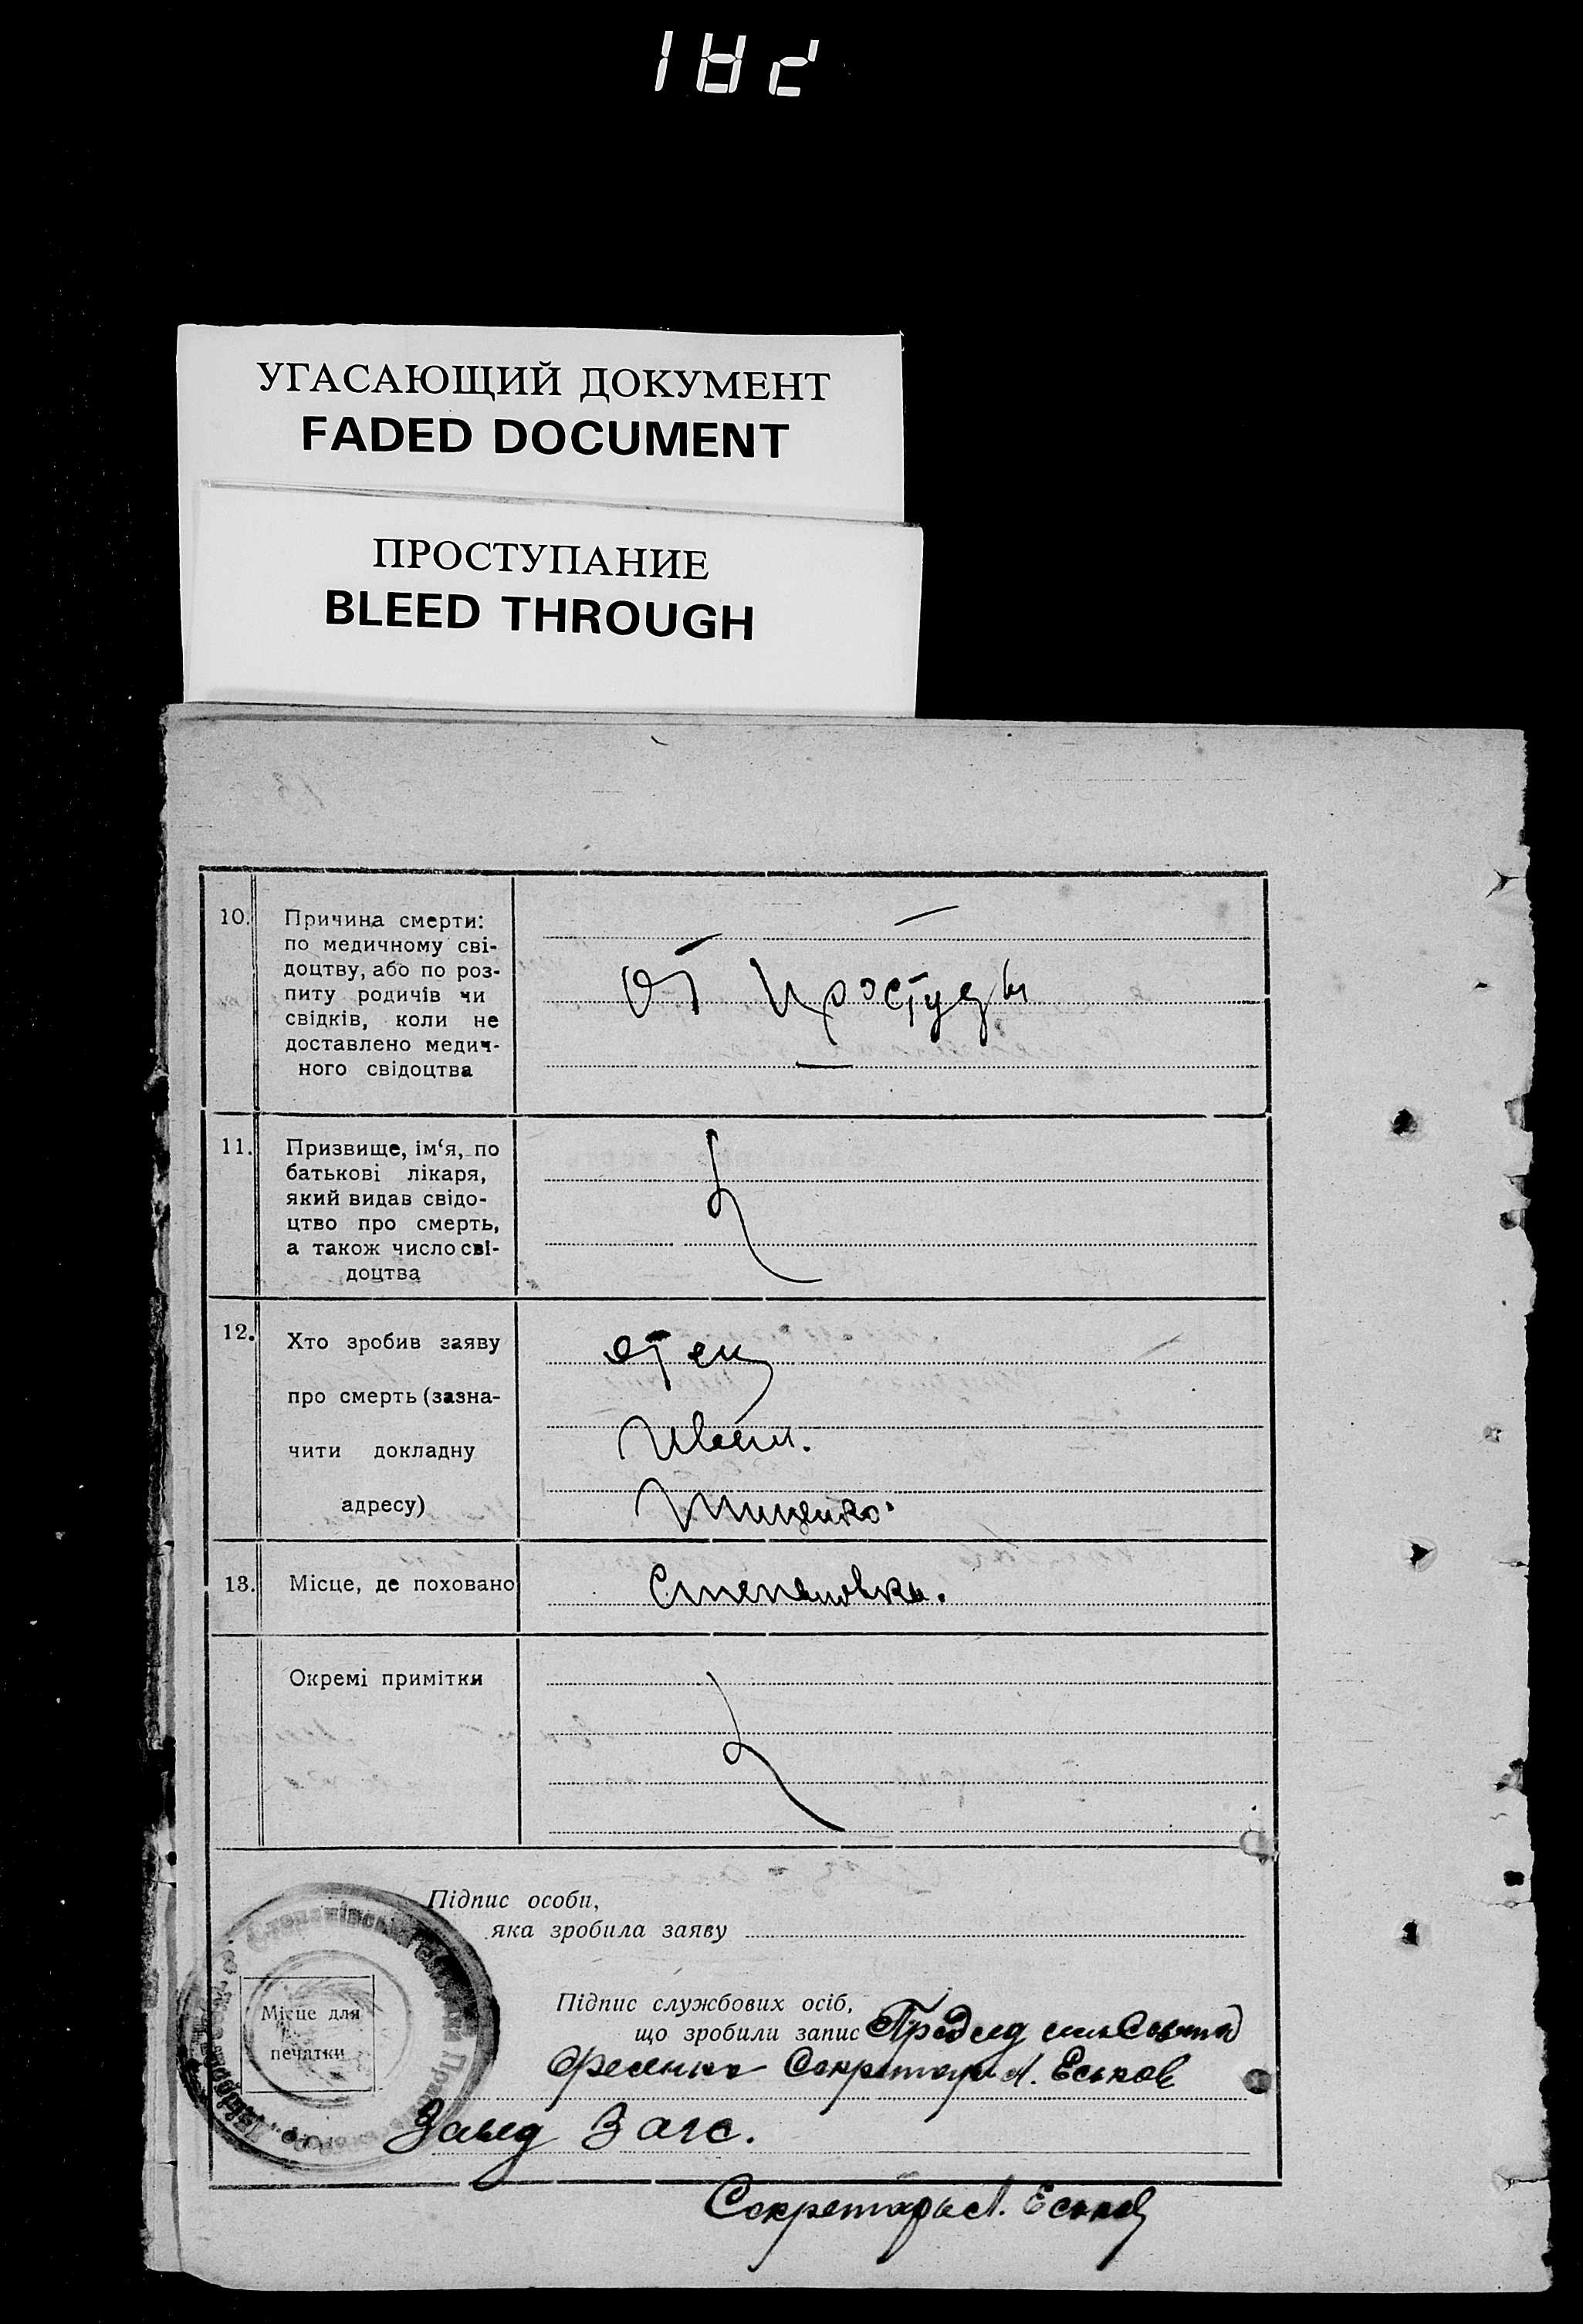 182
УГАСАЮЩИЙ ДОКУМЕНТ
FADED DOCUMENT
ПРОСТУПАНИЕ
BLEED THROUGH
10.
Причина смерти:
по медичному сві-
доцтву, або по роз-
питу родичів чи
свідків, коли не
доставлено медич-
ного свідоцтва
От простуды
11.
Призвище, ім‘я, по
батькові лікаря,
який видав свідо-
цтво про смерть,
а також число сві-
доцтва
12.
Хто зробив заяву
про смерть (зазна-
чити докладну
адресу)
отец
Иван.
13.
Місце, де поховано
Степановка.
Окремі примітки
Підпис особи,
яка зробила заяву
Місце для
печатки
Підпис службових осіб,
що зробили запис Председ
Секретарь А. Еськов
Завед Загс.
Секретарь А. Еськов